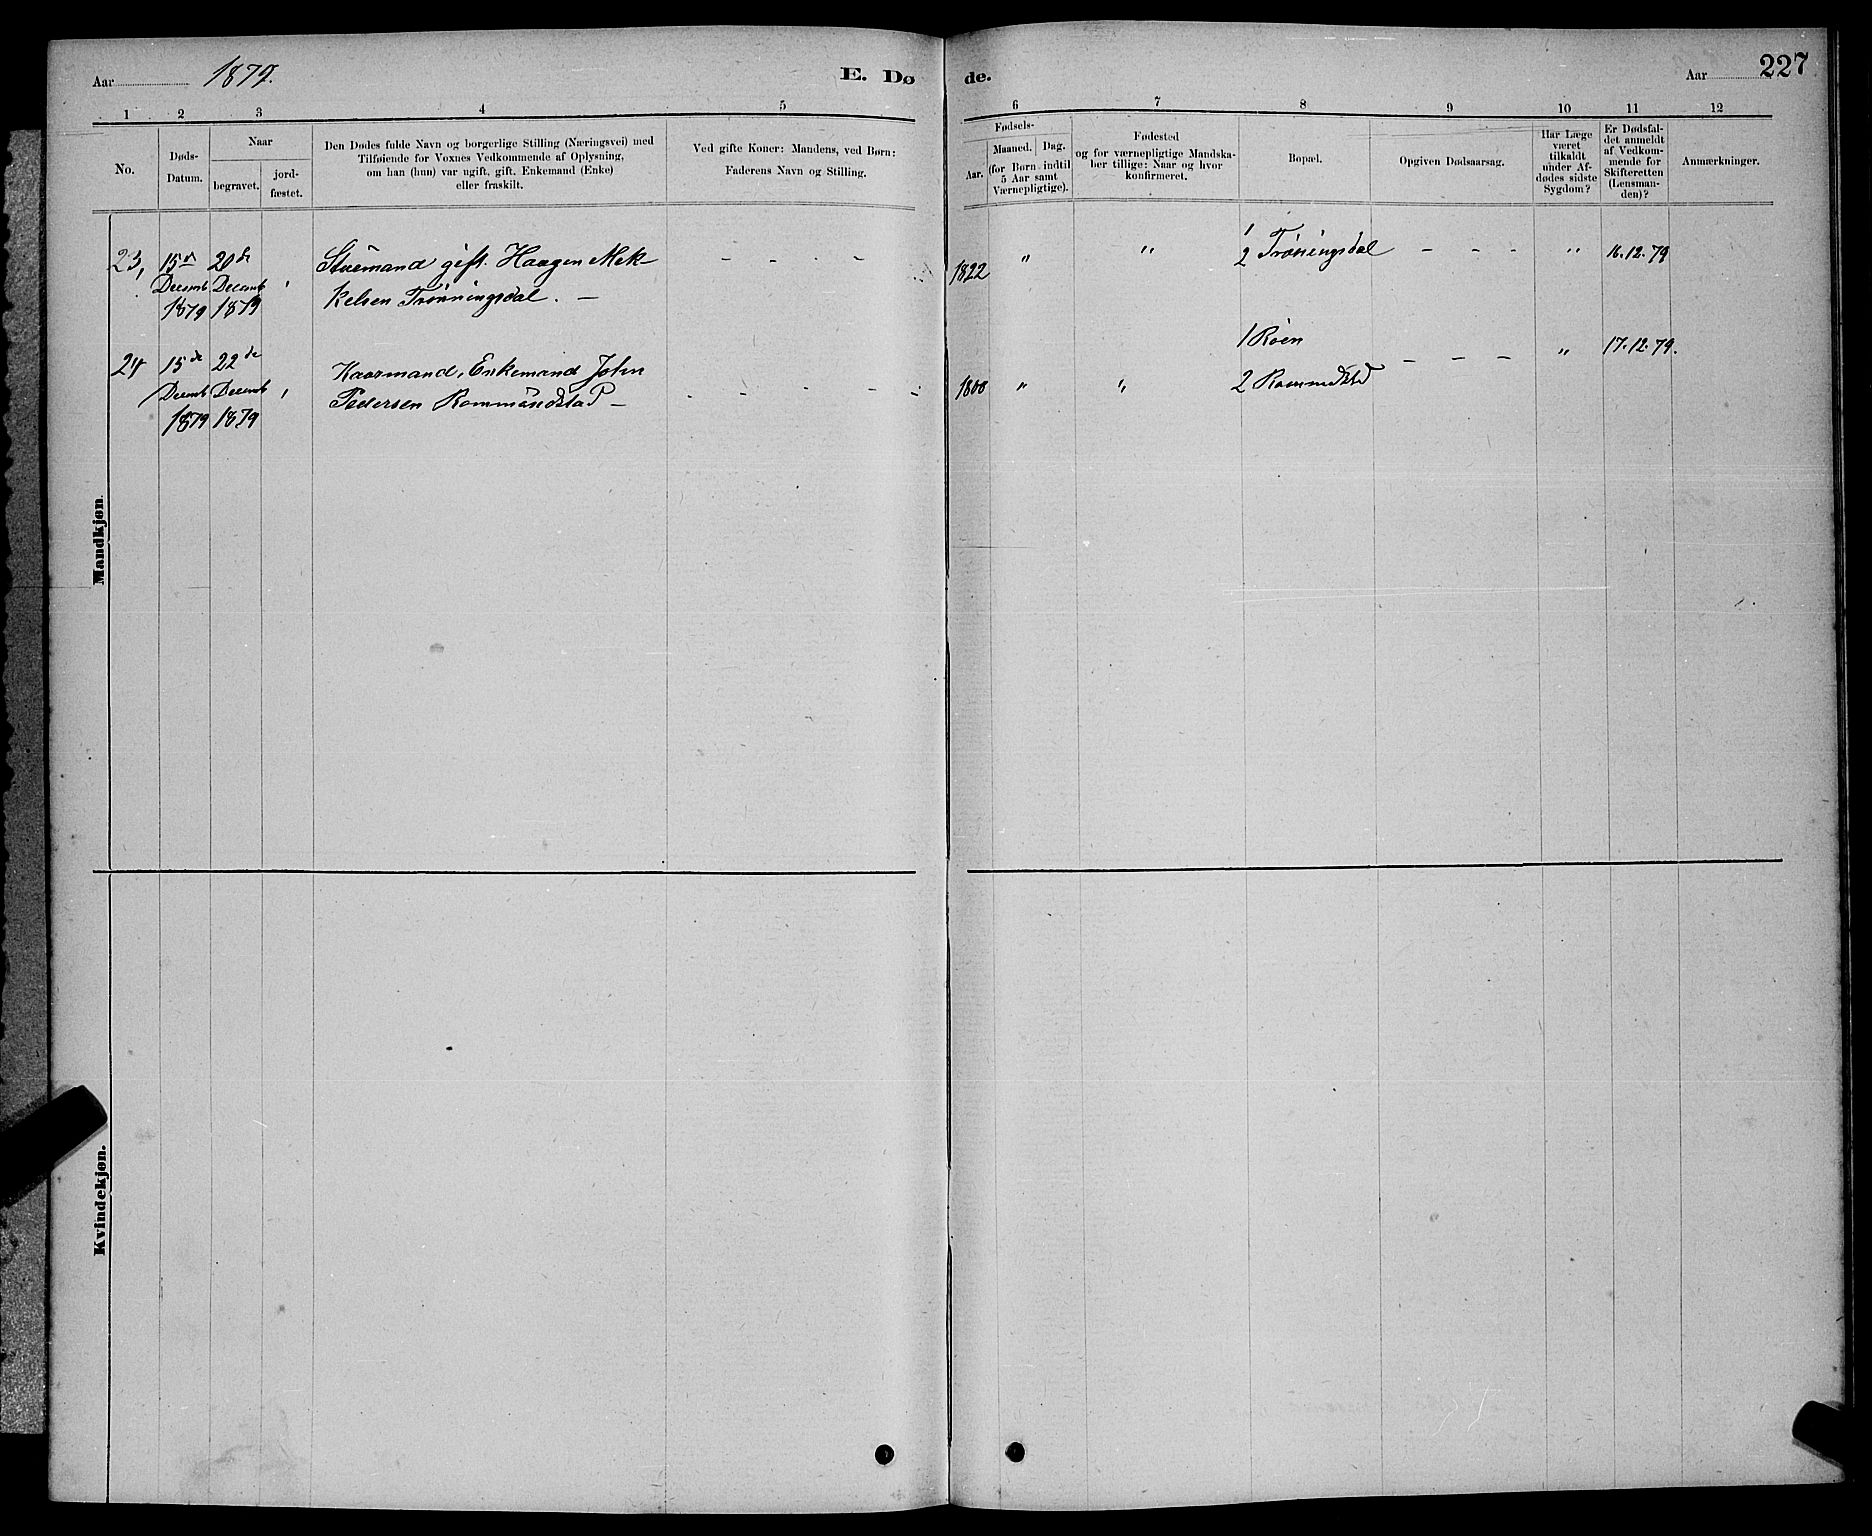 Aar 1879.
E. Dø
de.
Aar
227
1 2 3 4 5
6 7 8 9 10 11 12
No.
Døds-
Datum.
Naar
begravet.
jord-
fæstet.
Den Dødes fulde Navn og borgerlige Stilling (Næringsvei) med
Tilføiende for Voxnes Vedkommende af Oplysning,
om han (hun) var ugift, gift, Enkemand (Enke)
eller fraskilt.
Ved gifte Koner: Mandens, ved Børn:
Faderens Navn og Stilling.
Fødsels-
Aar.
Maaned. Dag.
(for Børn indtil
5 Aar samt
Værnepligtige).
Fødested
og for værnepligtige Mandska-
ber tillige: Naar og hvor
konfirmeret.
Bopæl.
Opgiven Dødsaarsag.
Har Læge
været
tilkaldt
under Af-
dødes sidste
Sygdom?
Er Dødsfal-
det anmeldt
af Vedkom-
mende for
Skifteretten
(Lensman-
den)?
Anmærkninger.
Mandkjøn.
23, 15de 20de
Decemb Decemb
1879 1879
gift. Haagen Mek-
kelsen Trønningsdal. —
- - - -
1822 " "
1
2 Trønningsdal - - - " 16.12.79
24 15de 22de
Decemb Decemb
1879 1879
Kaarmand, Enkemand John
Pedersen
- - - -
1808 " "
1 Roen
2
- - - " 17.12.79.
Kvindekjøn.